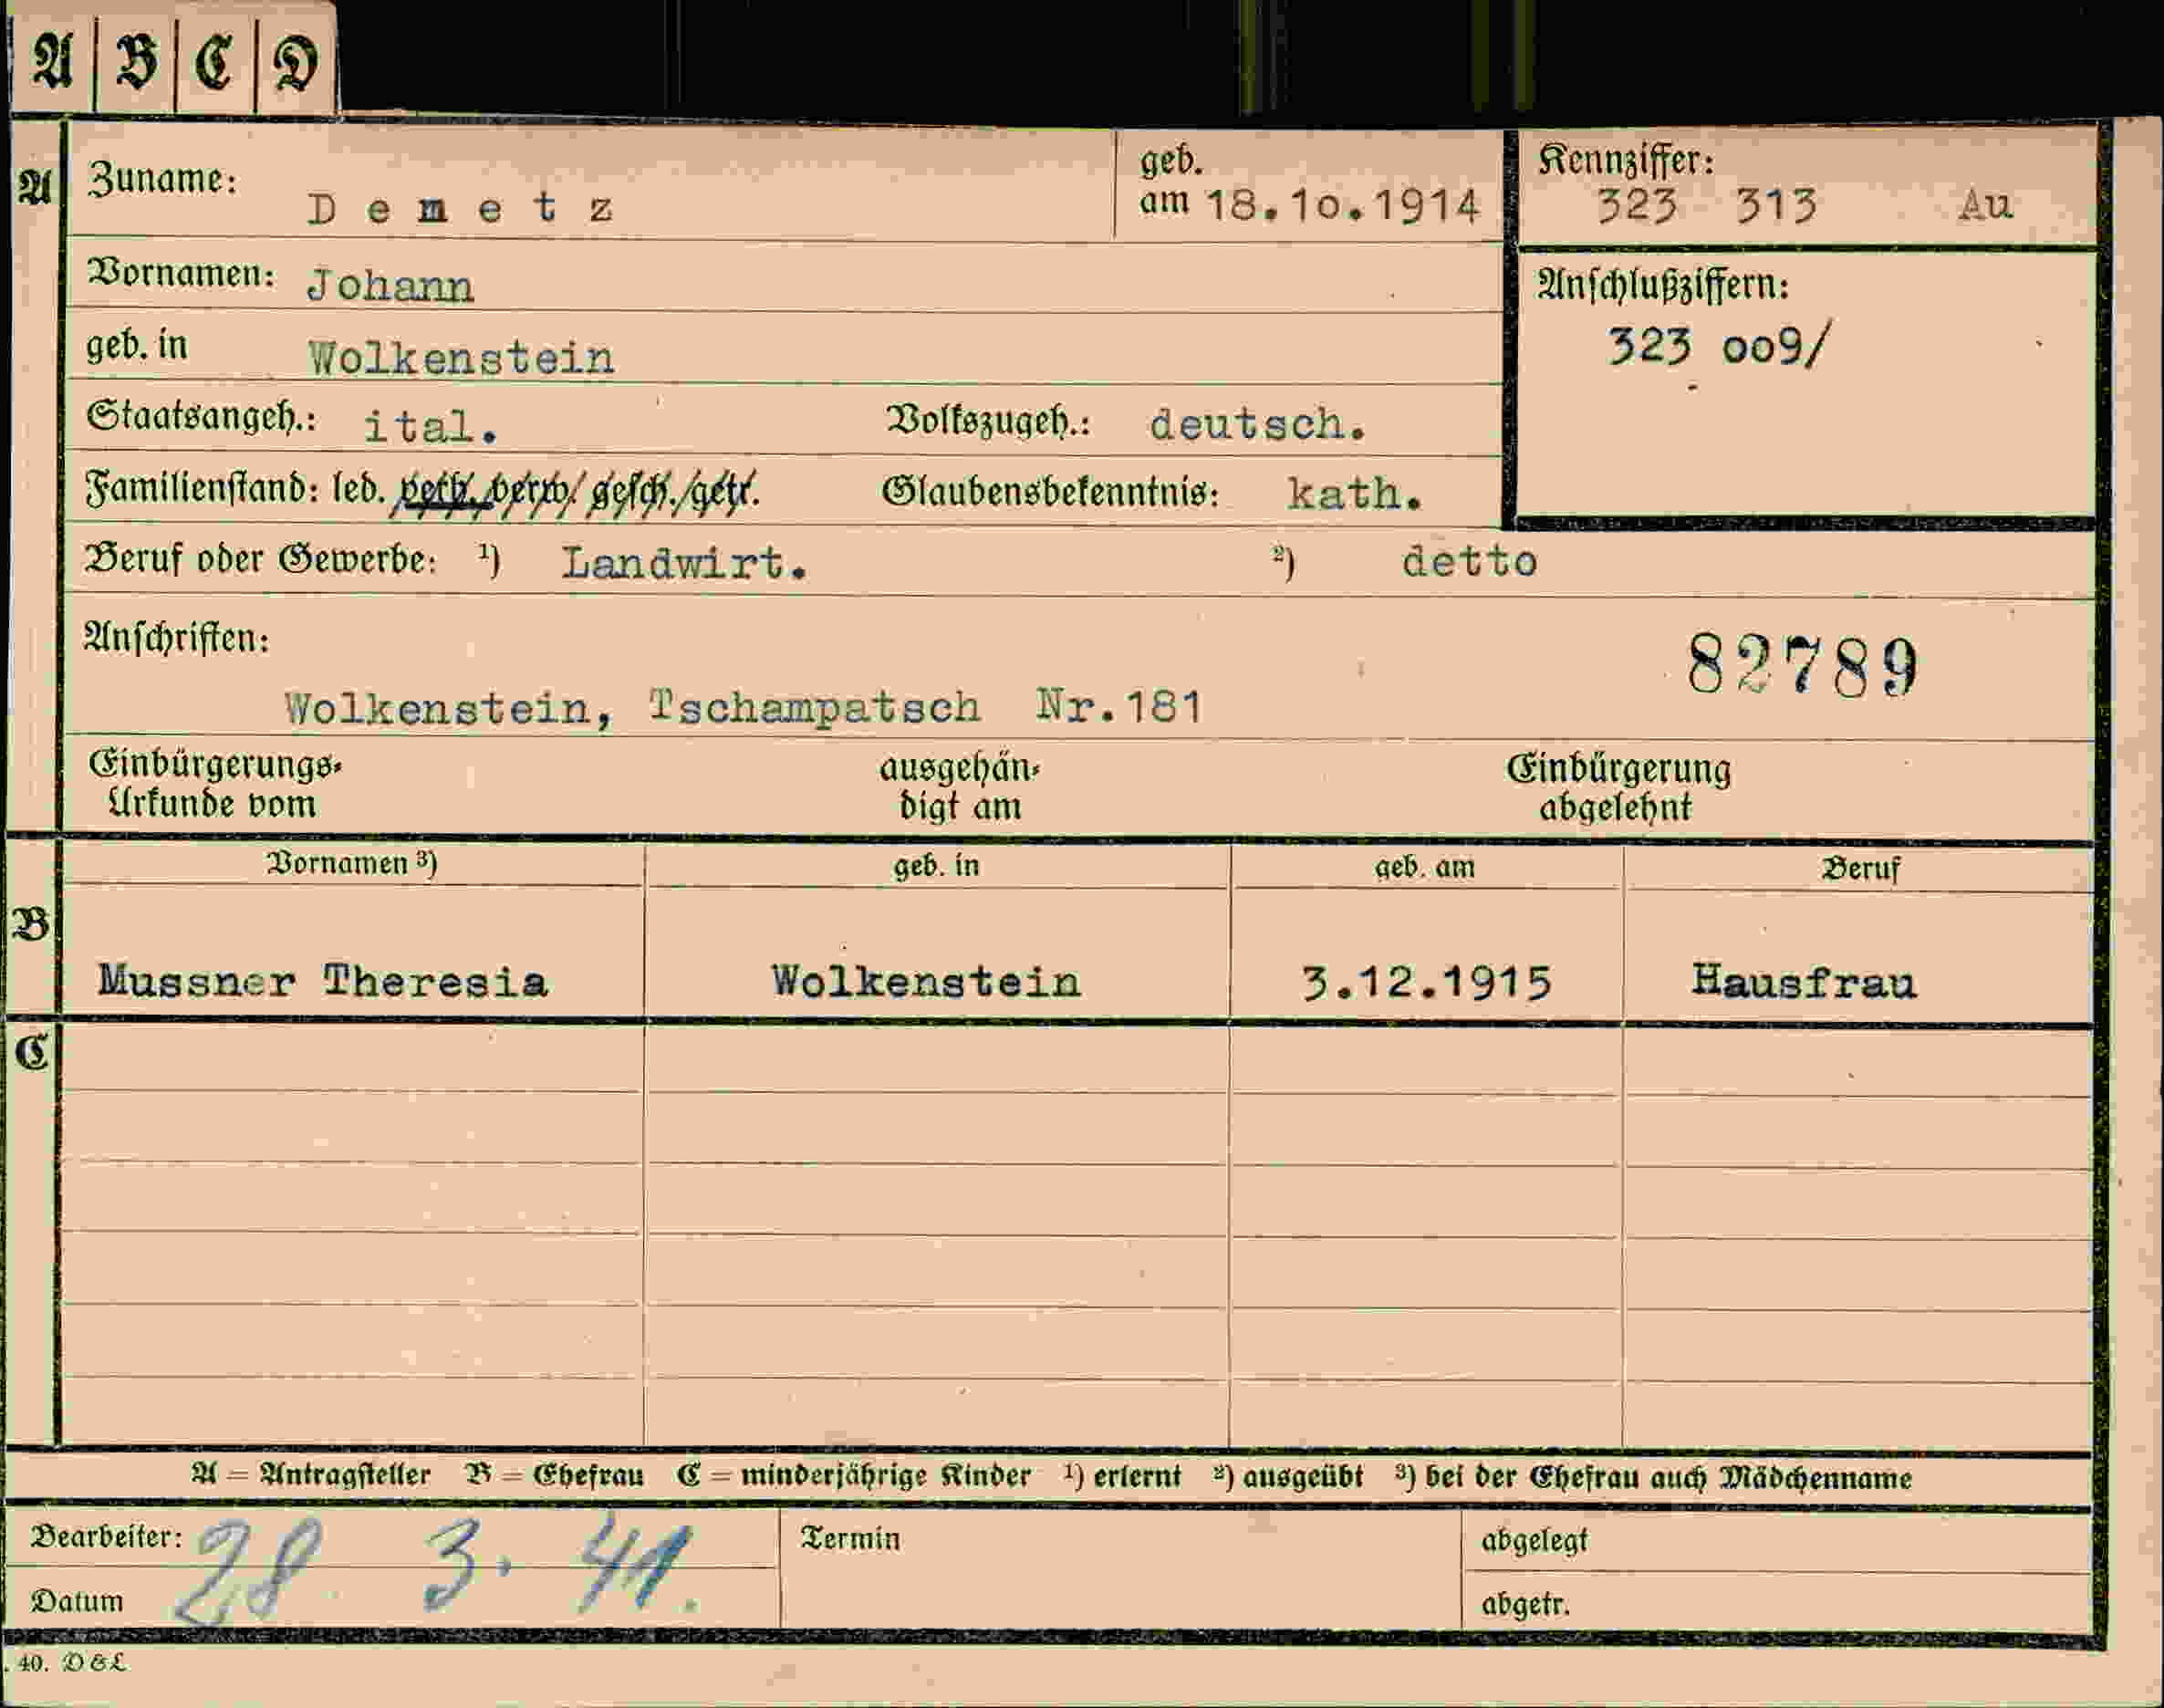 A B C D
A Zuname: Demetz geb. am 18.10.1914 Kennziffer: 323 313 Au
Vornamen: Johann Anschlußziffern:
geb. in Wolkenstein 323 009/
Staatsangeh.: ital. Volkszugeh.: deutsch.
Familienstand: led. verh. verw. gesch. getr. Glaubensbekenntnis: kath.
Beruf oder Gewerbe: ¹) Landwirt. ²) detto
Anschriften: 82789
Wolkenstein, Tschampatsch Nr.181
Einbürgerungs- ausgehän- Einbürgerung
Urkunde vom digt am abgelehnt
Vornamen ³) geb. in geb. am Beruf
B
Mussner Theresia Wolkenstein 3.12.1915 Hausfrau
C
A = Antragsteller B = Ehefrau C = minderjährige Kinder ¹) erlernt ²) ausgeübt ³) bei der Ehefrau auch Mädchenname
Bearbeiter: Termin abgelegt
28 3. 41.
Datum abgetr.
. 40. D&L